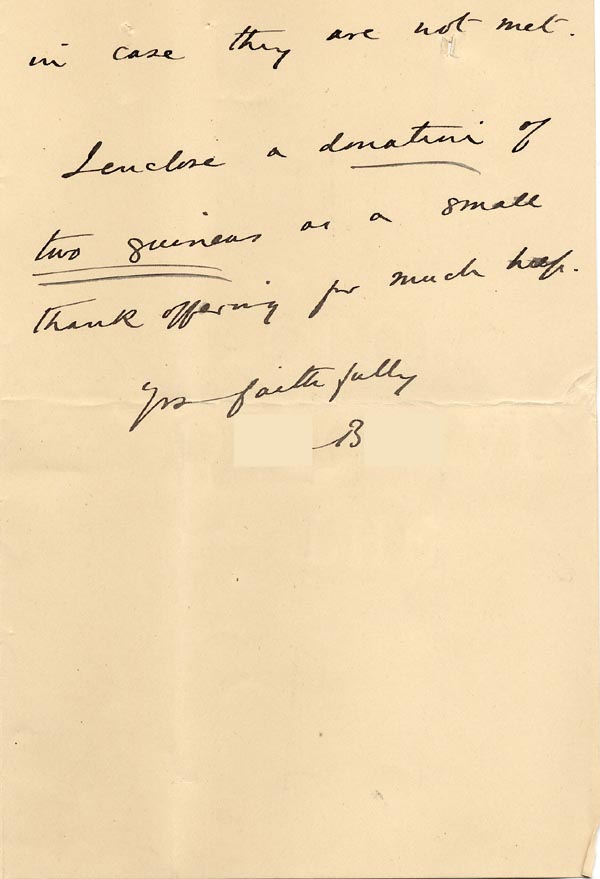 in case they are not met.
I enclose a donation of
two guineas as a small
thank offering for much help.
Yrs faithfully
B